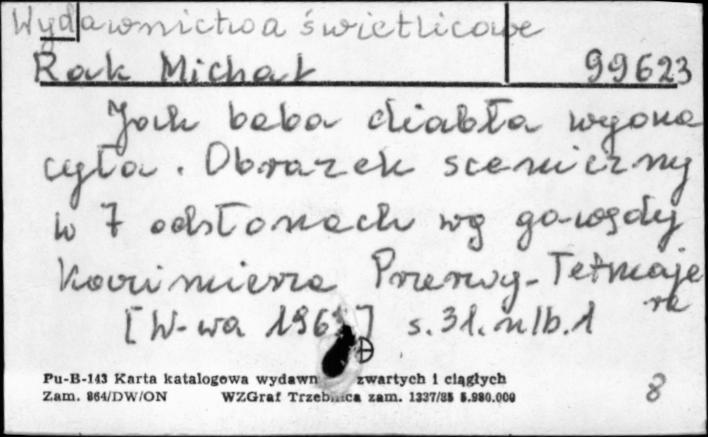 Wydawnictwa świetlicowe
Rak Michał 99623
Jak baba diabła wyona
cyła. Obrazek sceniczny
w 7 odsłonach wg gawędy
Kazimierza Przerwy-Tetmaje
ra
[W-wa 1961] s. 31. nlb. 1
Pu-B-143 Karta katalogowa wydawn zwartych i ciągłych
Zam. 864/DW/ON WZGraf Trzebnica zam. 1337/85 5.980.000
8